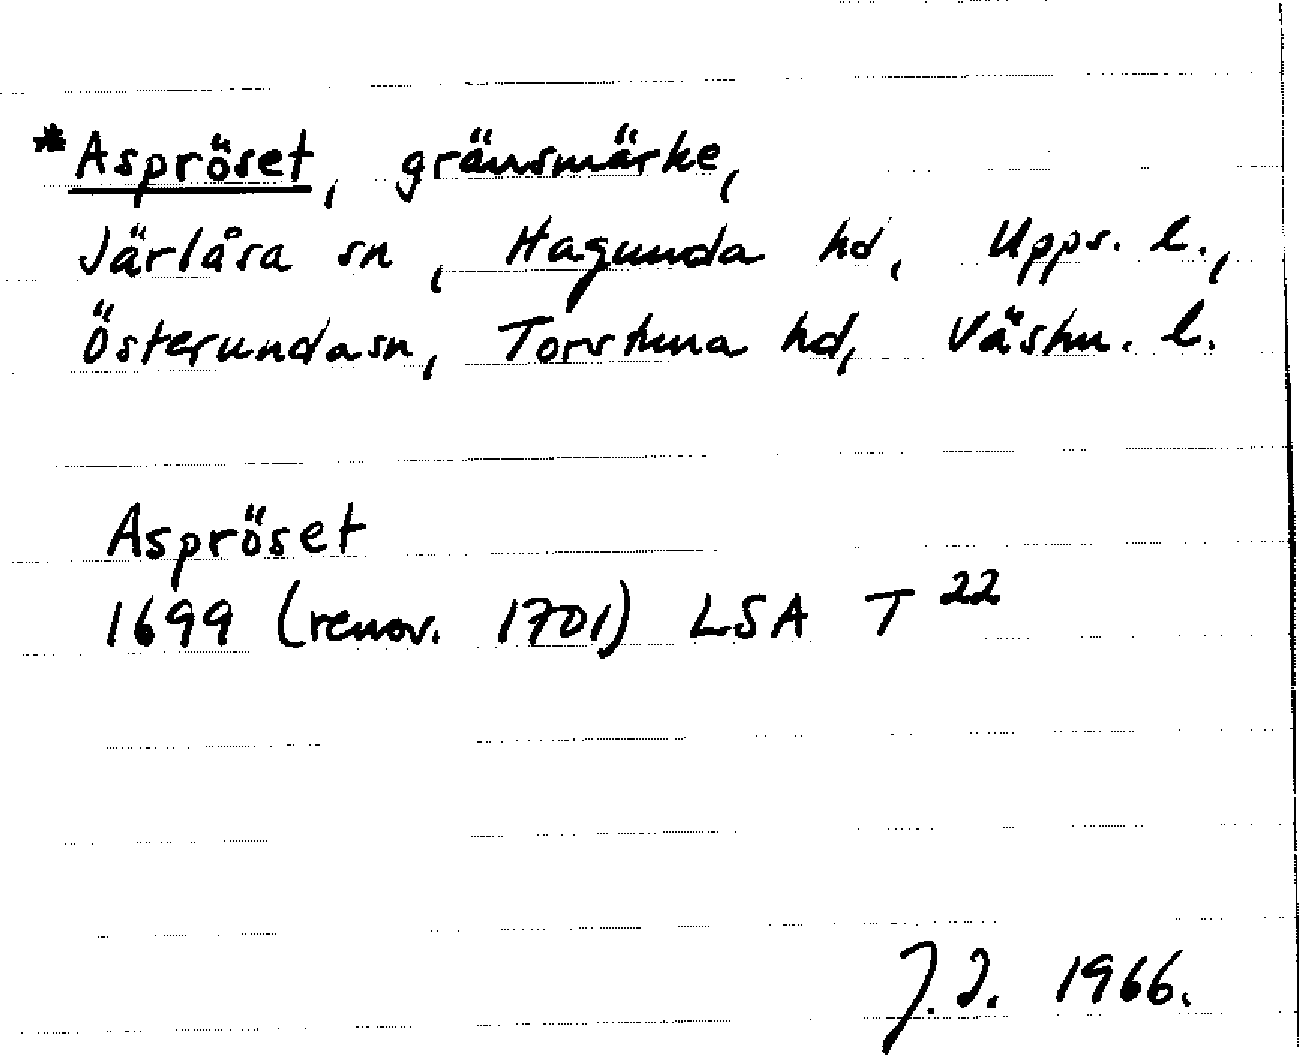 *Aspröset, gränsmärke,
Järlåsa sn, Hagunda hd, Upps. l.,
Österunda sn, Torstuna hd, Västm. l.
Aspröset
1699 (renov. 1701) LSA T 22
J.I. 1966.